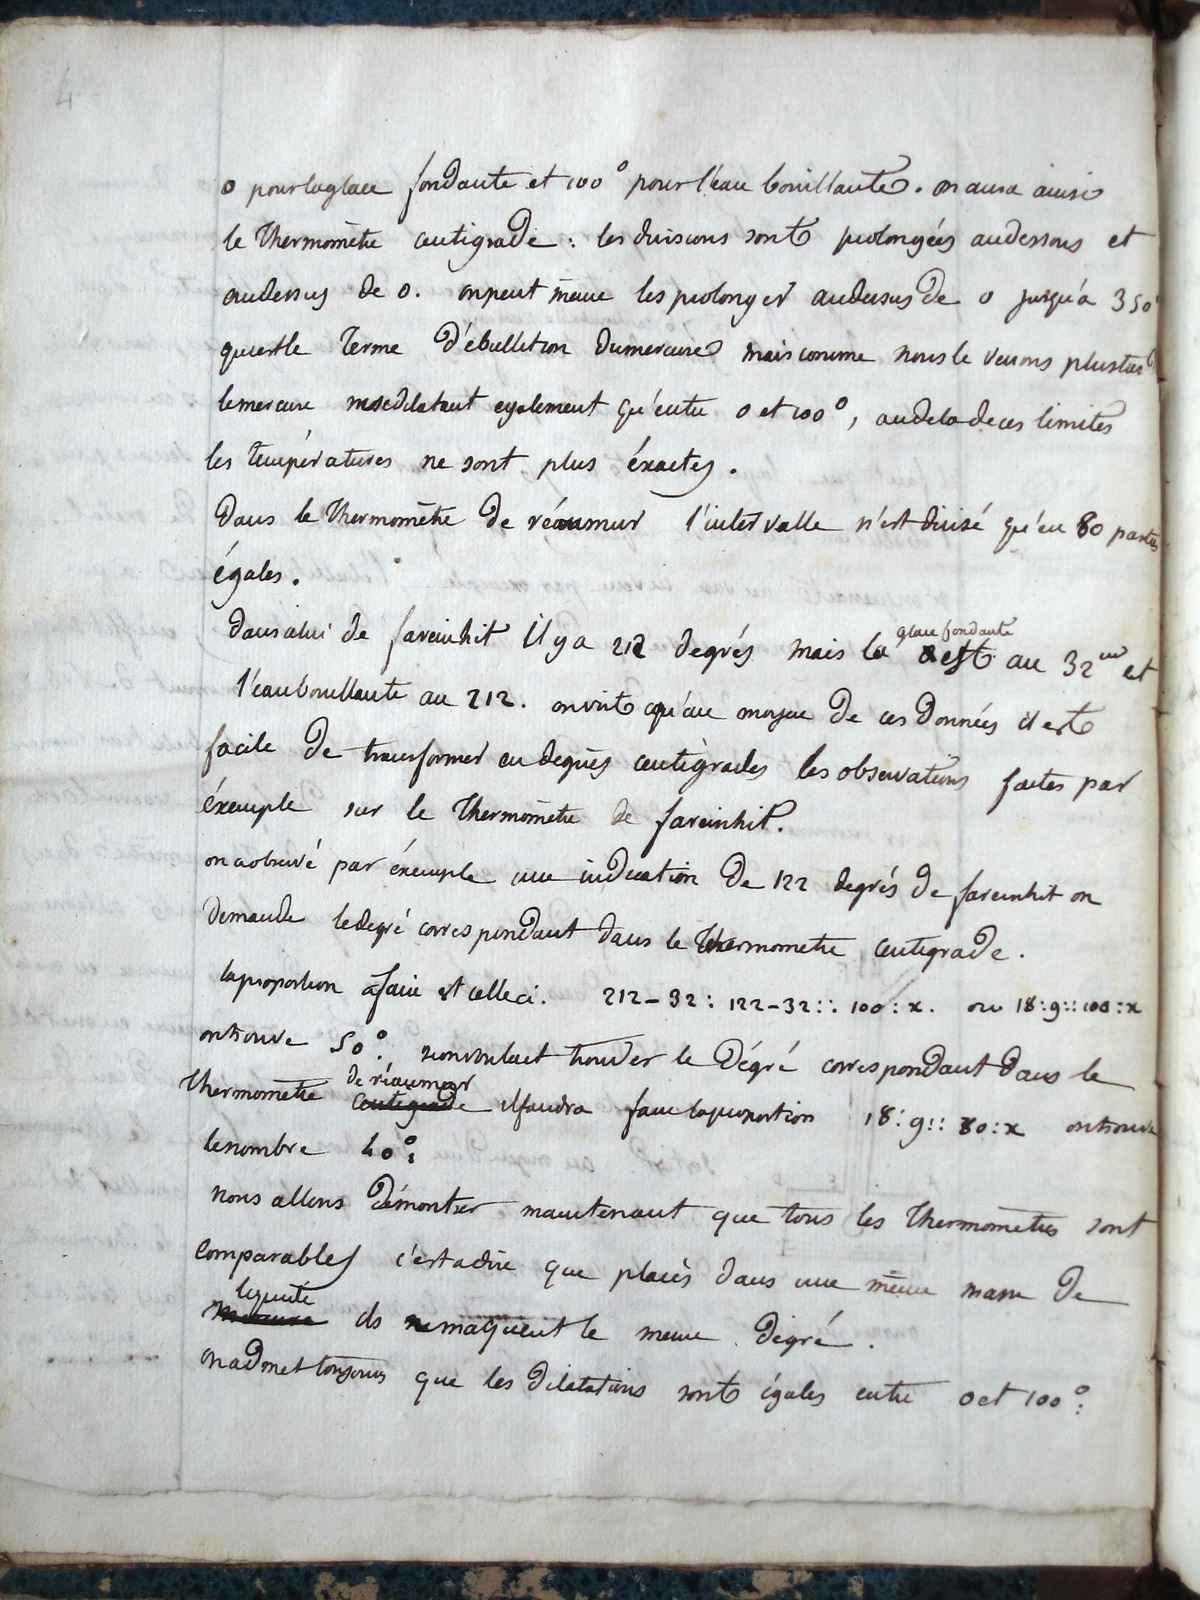 4
0 pour la glace fondante et 100° pour l'eau bouillante. on aura ainsi
le Thermomètre centigrade : les divisions sont prolongées audessous et
audessus de 0. on peut même les prolonger audessus de 0 jusqu'à 350°
qui est le terme d'ébullition du mercure mais comme nous le verrons plus tard
le mercure ne se dilatant egalement qu'entre 0 et 100°, au dela de ces limites
les températures ne sont plus éxactes.
Dans le Thermomètre de réaumur l'intervalle n'est divisé qu'en 80 parties
égales.
dans celui de fareinhit il y a 212 degrés mais la glace fondante est au 32me et
l'eau bouillante au 212. on voit qu'au moyen de ces Données il est
facile de transformer en degrés centigrades les observations faites par
éxemple sur le Thermomètre de fareinhit.
on a observé par éxemple une indication De 122 degrés de fareinhit on
Demande le degré correspondant dans le Thermometre centigrade.
la proportion a faire est celle ci. 212–32 : 122–32 :: 100 : x. ou 18:9::100:x
on trouve 50°. si on voulait trouver le Dégré correspondant Dans le
Thermomètre centigrade de réaumur il faudra faire la proportion 18:9::80:x on trouve
le nombre 40°.
nous allons Démontrer maintenant que tous les Thermomètres sont
comparables c'est a dire que placés dans une même masse de
mercure liquide ils marquent le meme dégré.
on admet toujours que les dilatations sont égales entre 0 et 100°: